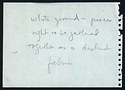 white ground – pieces
ought to be gathered
together as a distinct